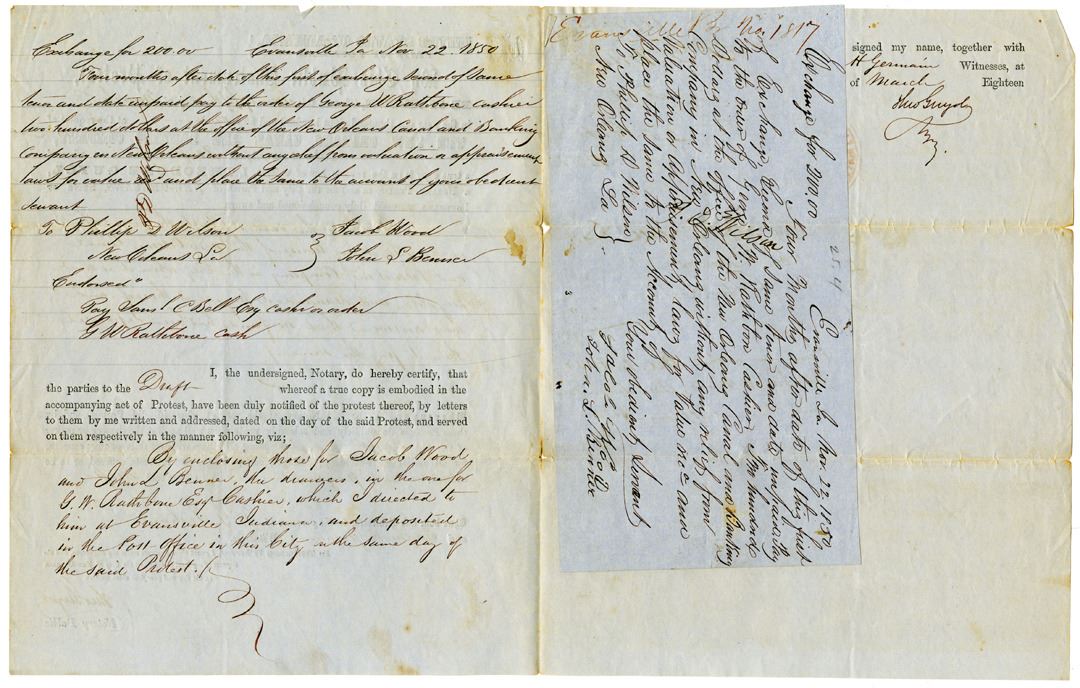 Exchange for 200.00 Evansville Ia Nov. 22 1850
Four months after date of this first of exchange second of same
tenor and date unpaid pay to the order of George W Rathbone cashier
two hundred dollars at the office of the New Orleans Canal and Banking
Company in New Orleans without any relief from valuation or appraisement
laws for value and place the same to the account of your obedient
servant
To Phillip D Wilson Jacob Wood
New Orleans La John S Benner
Endorsed"
Pay Saml C Bell Esq cash or order
G W Rathbone cash
I, the undersigned, Notary, do hereby certify, that
the parties to the Draft whereof a true copy is embodied in the
accompanying act of Protest, have been duly notified of the protest thereof, by letters
to them by me written and addressed, dated on the day of the said Protest, and served
on them respectively in the manner following, viz;
By enclosing those for Jacob Wood
and John S Benner, the drawers, in the one for
G. W. Rathbone Esqr Cashier, which I directed to
him at Evansville Indiana, and deposited
in the Post Office in this City on the same day of
the said Protest.
Evansville 1817
Exchange for 200,00 Evansville Ia. Nov. 22, 1850
Four Months after date of this first
of Exchange Second of Same tenor and date unpaid Pay
to the order of George W. Rathbon Cashier Two hundred
dollars at the office of the New Orleans Canal and Banking
Company in New Orleans without any relief from
Valuation or Appraisement laws for Value rec and
place the same to the Account of
Your obedient Servant
To Phillip D Wilson Jacob Wood
New Orleans La John S. Benner
Wilson
2504
signed my name, together with
H Germain Witnesses, at
of March Eighteen